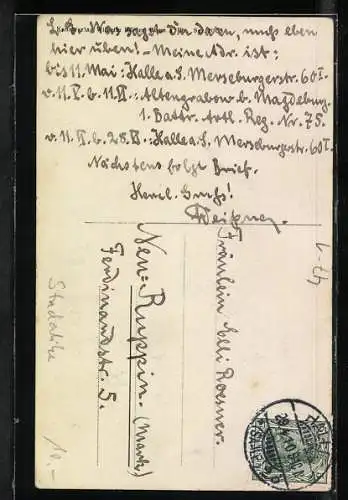 L. E. Was sagst Du dazu, muß eben
hier üben! – Meine Adr. ist:
bis 11. Mai: Halle a. S. Merseburgerstr. 60 I.
v. 11. V. b. 11. VI.: Altengrabow b. Magdeburg.
1. Battr. Artl. Reg. Nr. 75.
v. 11. VI. b. 28. VI.: Halle a. S., Merseburgerstr. 60 I.
Nächstens folgt Brief.
Herzl. Gruß!
Fräulein Elli Roesner.
Neu-Ruppin. (Mark)
Ferdinandstr. 5.
10.-